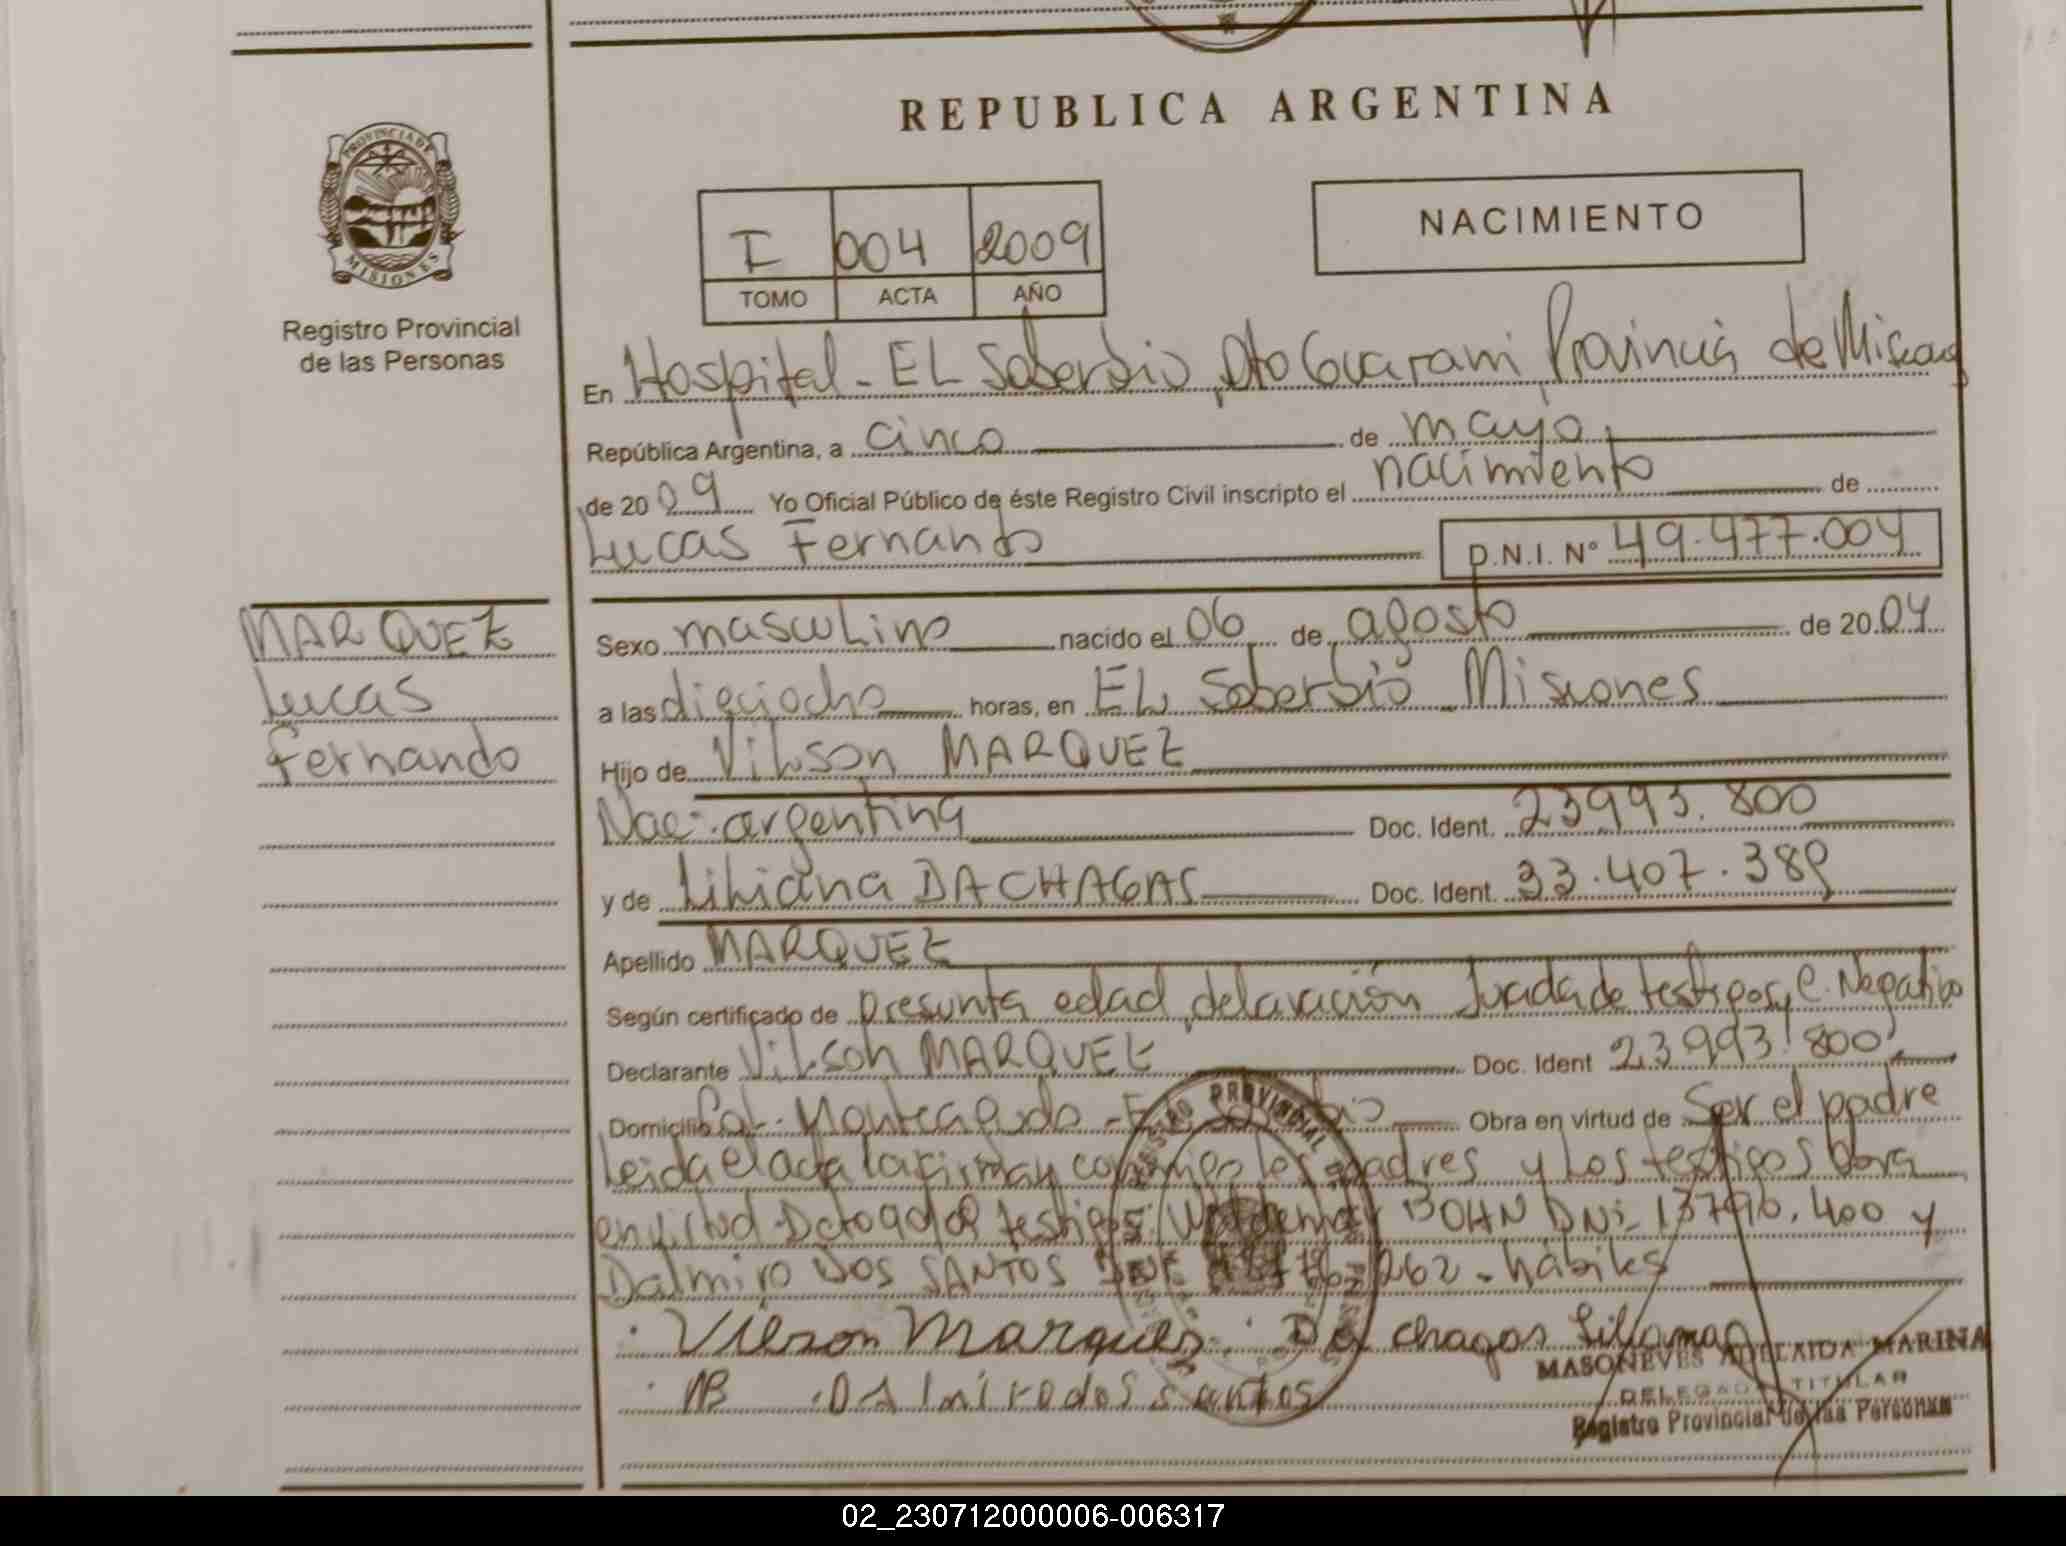 REPUBLICA ARGENTINA
PROVINCIA DE MISIONES
Registro Provincial
de las Personas
I 004 2009
TOMO ACTA AÑO
NACIMIENTO
En Hospital - EL Soberbio, Dto Guarani Provincia de Misiones
República Argentina, a cinco de mayo
de 2009 Yo Oficial Público de éste Registro Civil inscripto el nacimiento de
Lucas Fernando D.N.I. Nº 49.477.004
MARQUEZ
Lucas
Fernando
Sexo masculino nacido el 06 de agosto de 2004
a las dieciocho horas, en EL Soberbio Misiones
Hijo de Vilson MARQUEZ
Nac. argentina Doc. Ident. 23993.800
y de Liliana DA CHAGAS Doc. Ident. 33.407.389
Apellido MARQUEZ
Según certificado de presunta edad, delaración Jurada de testigos, C. Negativo
Declarante Vilson MARQUEZ Doc. Ident 23993.800
Domicilio Col. Monteagudo - El Soberbio Obra en virtud de Ser el padre
Leida el acta la firman conmigo los padres y los testigos Obra
en virtud testigos BOHN DNi 13790.400 y
Dalmiro DOS SANTOS 262 - hábiles
Vilson Marquez Da chagas Liliana
Dalmiro dos santos
REGISTRO PROVINCIAL
MASONEVES ADELAIDA MARINA
DELEGADA TITULAR
Registro Provincial de las Personas
02_230712000006-006317